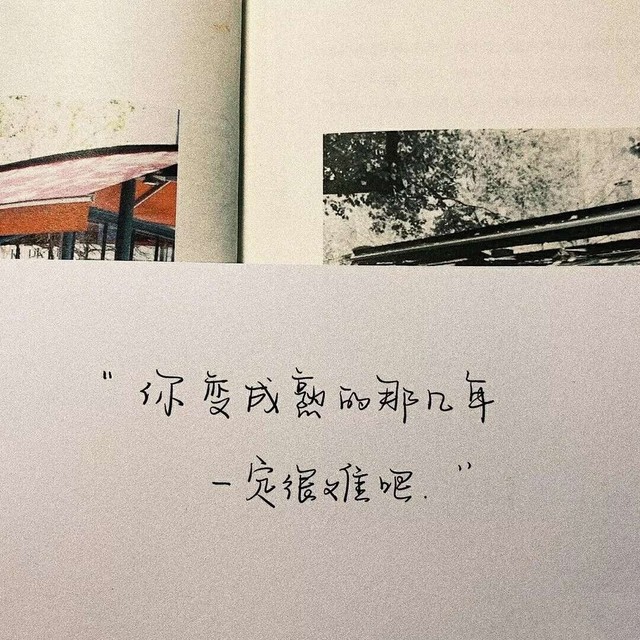 “你变成熟的那几年
一定很难吧.”